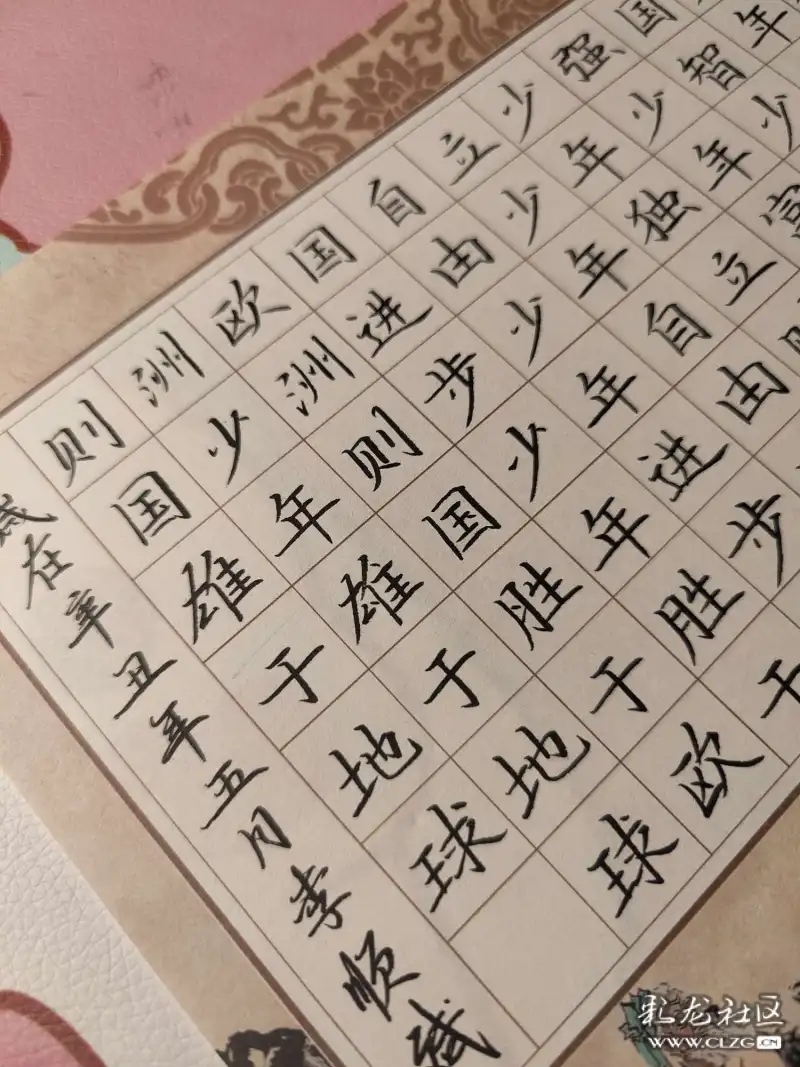 年
国智少
强少年富
少年独立
立少年自由
自由少年进步
国进步少年胜于
欧洲则国胜于欧
洲少年雄于地球
则国雄于地球
在辛丑年五月李顺
彩龙社区
WWW.CLZG.CN